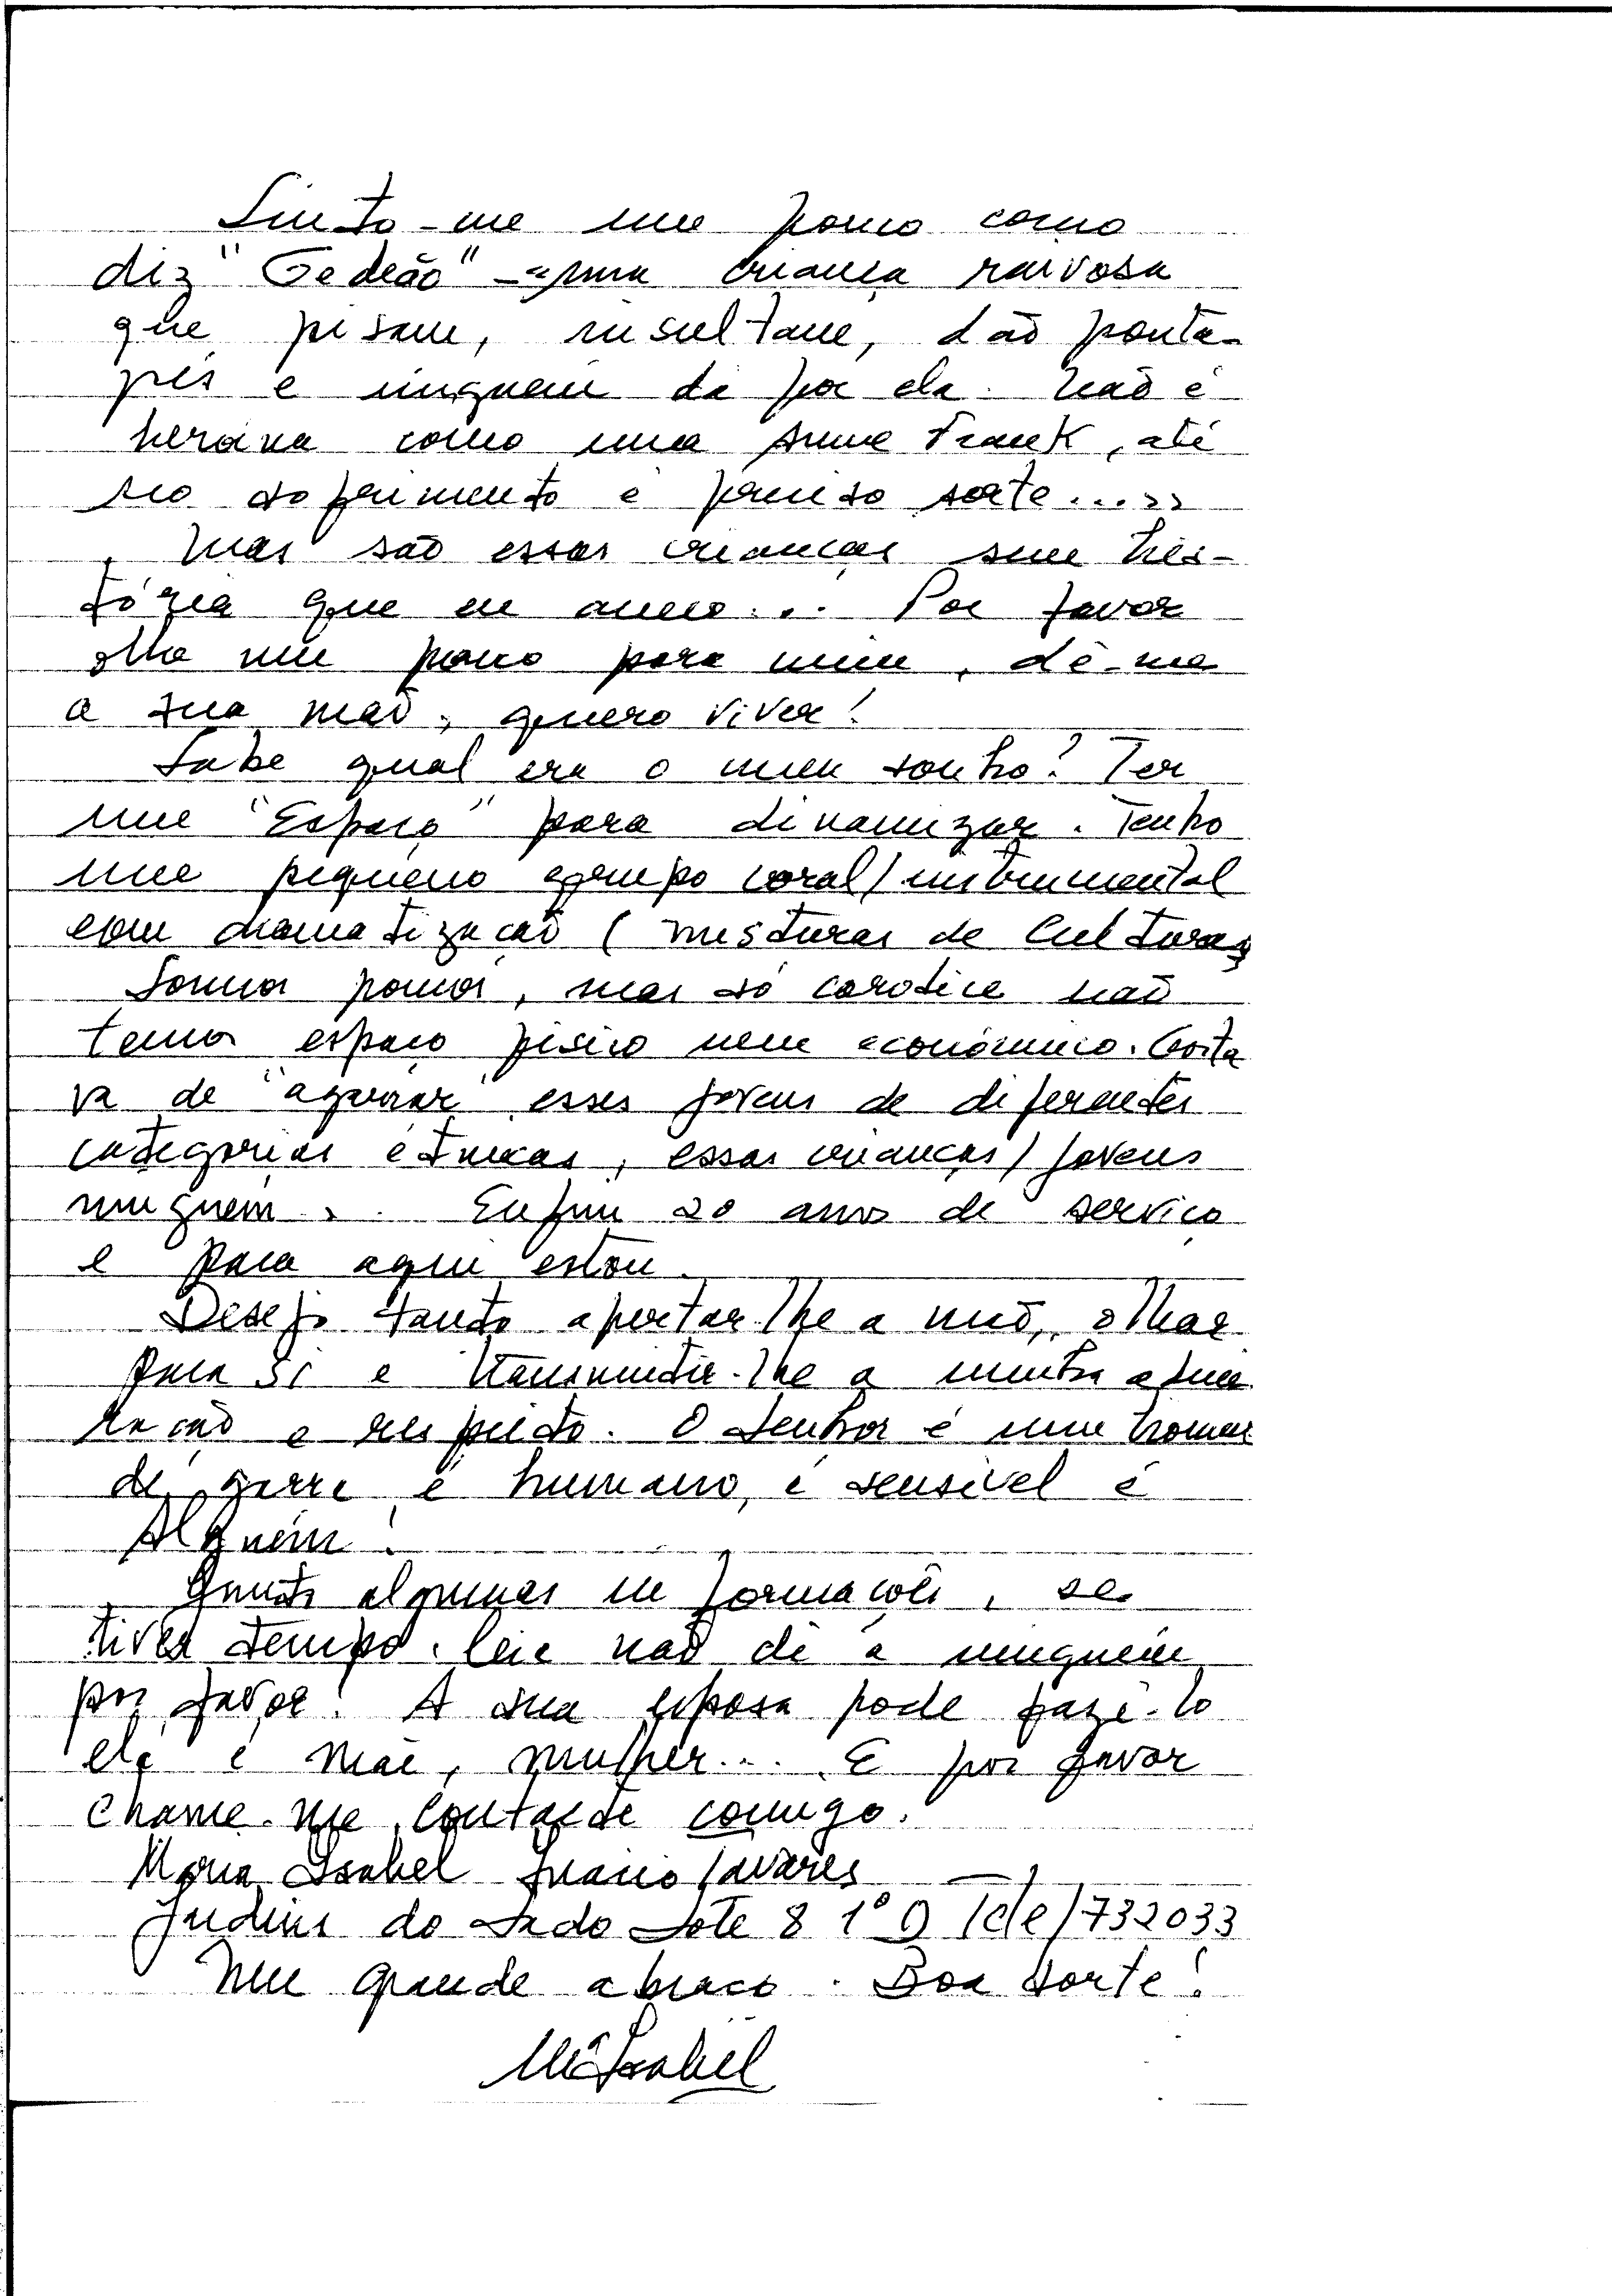 Sinto-me um pouco como
diz "Gedeão" - "uma criança raivosa
que pisam, insultam, dão ponta-
pés e ninguém dá por ela. Não é
heroína como uma Anne Frank, até
no sofrimento é preciso sorte...."
Mas são essas crianças sem his-
tória que eu amo... Por favor
olhe um pouco para mim, dê-me
a sua mão, quero viver!
Sabe qual era o meu sonho? Ter
um "Espaço" para dinamizar. Tenho
um pequeno grupo coral/instrumental
com dramatização (misturas de Culturas)
Somos poucos, mas só carolice não
temos espaço físico nem económico. Gosta
va de "agarrar" esses jovens de diferentes
categorias étnicas, essas crianças/jovens
ninguém... Enfim 20 anos de serviço
e para aqui estou.
Desejo tanto apertar-lhe a mão, olhar
para si e transmitir-lhe a minha admi
ração e respeito. O Senhor é um homem
de garra é humano, é sensível é
Alguém!
Junto algumas informações, se
tiver tempo. Leia não dê a ninguém
por favor! A sua esposa pode fazê-lo
ela é mãe, mulher.... E por favor
chame-me, contacte comigo.
Maria Isabel Tavares
Jardins do Sado Lote 8 1º D Tele/732033
Um grande abraço. Boa Sorte!
Mª Isabel